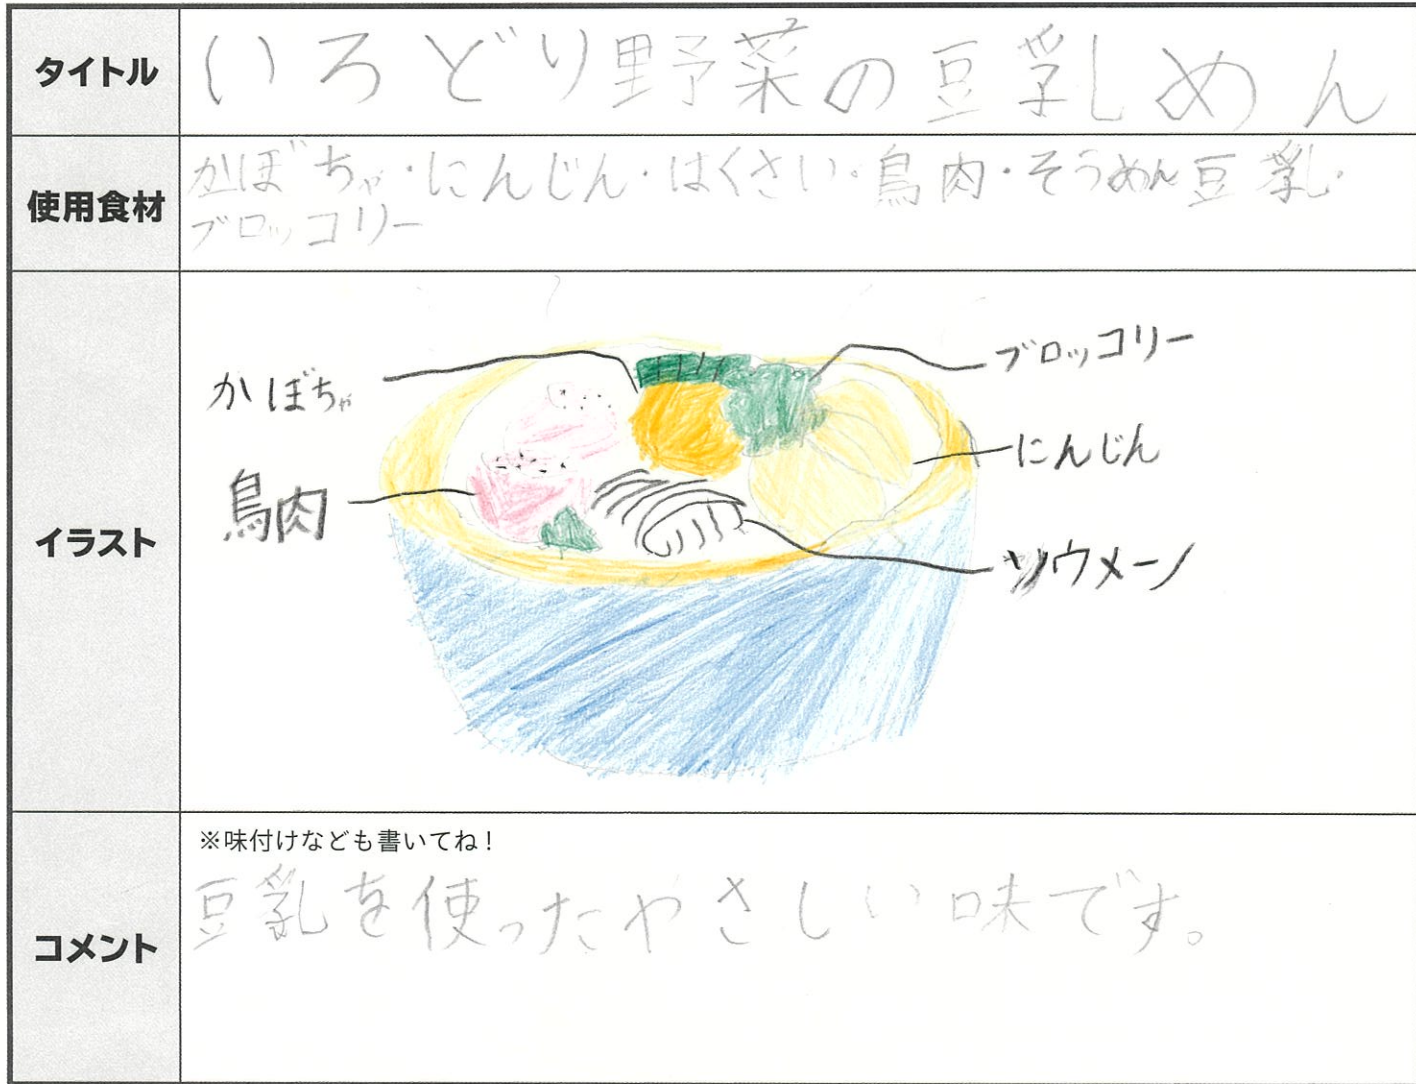 タイトル
いろどり野菜の豆乳めん
使用食材
かぼちゃ・にんじん・はくさい・鳥肉・そうめん豆乳・
ブロッコリー
イラスト
かぼちゃ
鳥肉
ブロッコリー
にんじん
ソウメーン
コメント
※味付けなども書いてね!
豆乳を使ったやさしい味です。